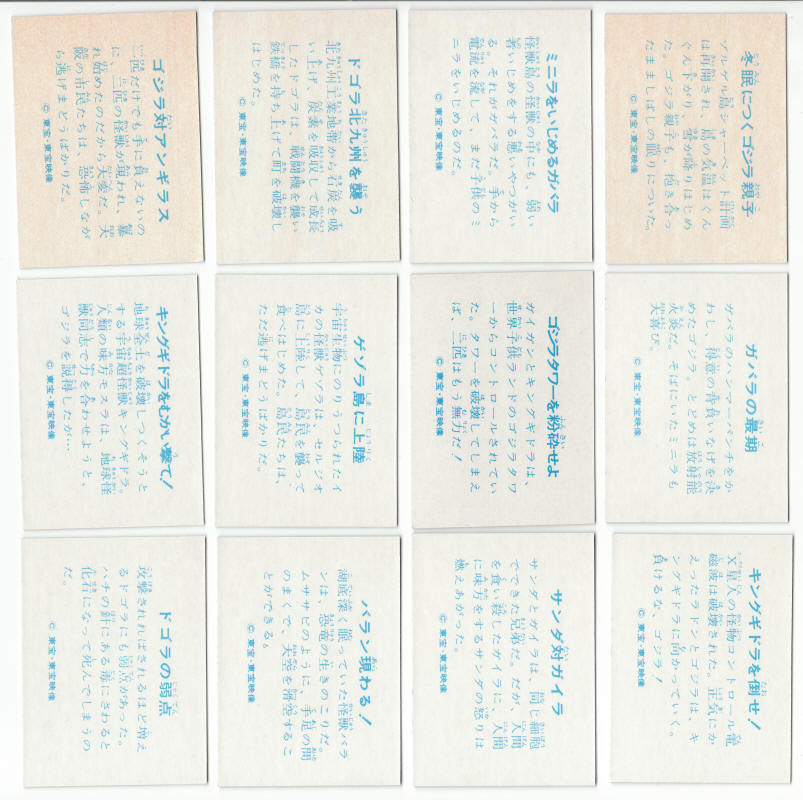 冬眠につくゴジラ親子
ゾルゲル島シャーベット計画
は再開され、島の気温はぐん
ぐん下がり、雪が降りはじめ
た。ゴジラ親子も、抱き合っ
たまましばしの眠りについた。
© 東宝・東宝映像
ミニラをいじめるガバラ
怪獣島の怪獣の中にも、弱い
者いじめをする悪いやつがい
る。それがガバラだ。手から
電流を流して、まだ子供のミ
ニラをいじめるのだ。
© 東宝・東宝映像
ドゴラ北九州を襲う
北九州工業地帯から石炭を吸
い上げ、炭素を吸収して成長
したドゴラは、戦闘機を襲い
鉄橋を持ち上げて町を破壊し
はじめた。
© 東宝・東宝映像
ゴジラ対アンギラス
一匹だけでも手に負えないの
に、二匹の怪獣が現われ、暴
れ始めたのだから大変だ。大
阪の市民たちは、恐怖しなが
ら逃げまどうばかりだ。
© 東宝・東宝映像
ガバラの最期
ガバラのハンマーパンチをか
わし、得意の背負いなげを決
めたゴジラ。とどめは放射能
火炎だ。そばにいたミニラも
大喜び。
© 東宝・東宝映像
ゴジラタワーを粉砕せよ
ガイガンとキングギドラは、
世界子供ランドのゴジラタワ
ーからコントロールされてい
た。タワーを破壊してしまえ
ば、二匹はもう無力だ!
© 東宝・東宝映像
ゲゾラ島に上陸
宇宙生物にのりうつられたイ
カの怪獣ゲゾラは、セルジオ
島に上陸して、島民を襲って
食べはじめた。島民たちは、
ただ逃げまどうばかりだ。
© 東宝・東宝映像
キングギドラをむかい撃て!
地球全土を破壊しつくそうと
する宇宙超怪獣キングギドラ。
人類の味方モスラは、地球怪
獣同志で力を合わせようと、
ゴジラを説得したが…
© 東宝・東宝映像
キングギドラを倒せ!
X星人の怪物コントロール電
磁波は破壊された。正気にか
えったラドンとゴジラは、キ
ングギドラに向かっていく。
負けるな、ゴジラ!
© 東宝・東宝映像
サンダ対ガイラ
サンダとガイラは、同じ細胞
でできた兄弟だ。だが、人間
を食い殺したガイラに、人間
に味方をするサンダの怒りは
燃えあがった。
© 東宝・東宝映像
バラン現わる!
湖底深く眠っていた怪獣バラ
ンは、恐竜の生きのこりだ。
ムササビのように、手足の間
のまくで、大空を滑空するこ
とができる。
© 東宝・東宝映像
ドゴラの弱点
攻撃されればされるほど増え
るドゴラにも弱点があった。
ハチの針にある毒にさわると
化石になって死んでしまうの
だ。
© 東宝・東宝映像